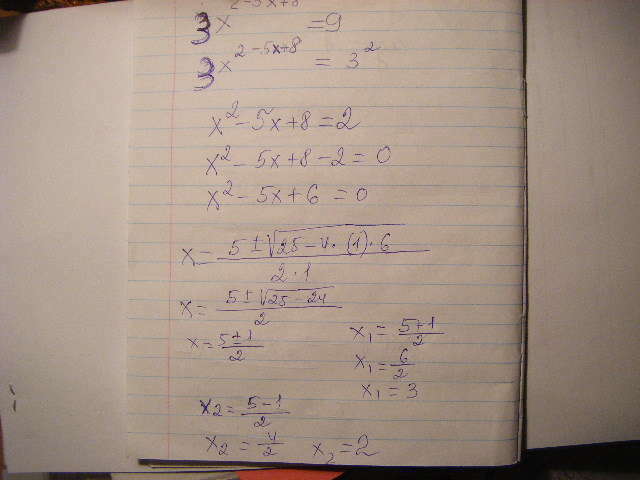 3x^2-5x+8 = 9
3x^2-5x+8 = 3^2
x^2 - 5x + 8 = 2
x^2 - 5x + 8 - 2 = 0
x^2 - 5x + 6 = 0
x = 5 ± √25 - 4 · (1) · 6 / 2 · 1
x = 5 ± √25 - 24 / 2
x = 5 ± 1 / 2
x1 = 5 + 1 / 2
x1 = 6 / 2
x1 = 3
x2 = 5 - 1 / 2
x2 = 4 / 2
x2 = 2